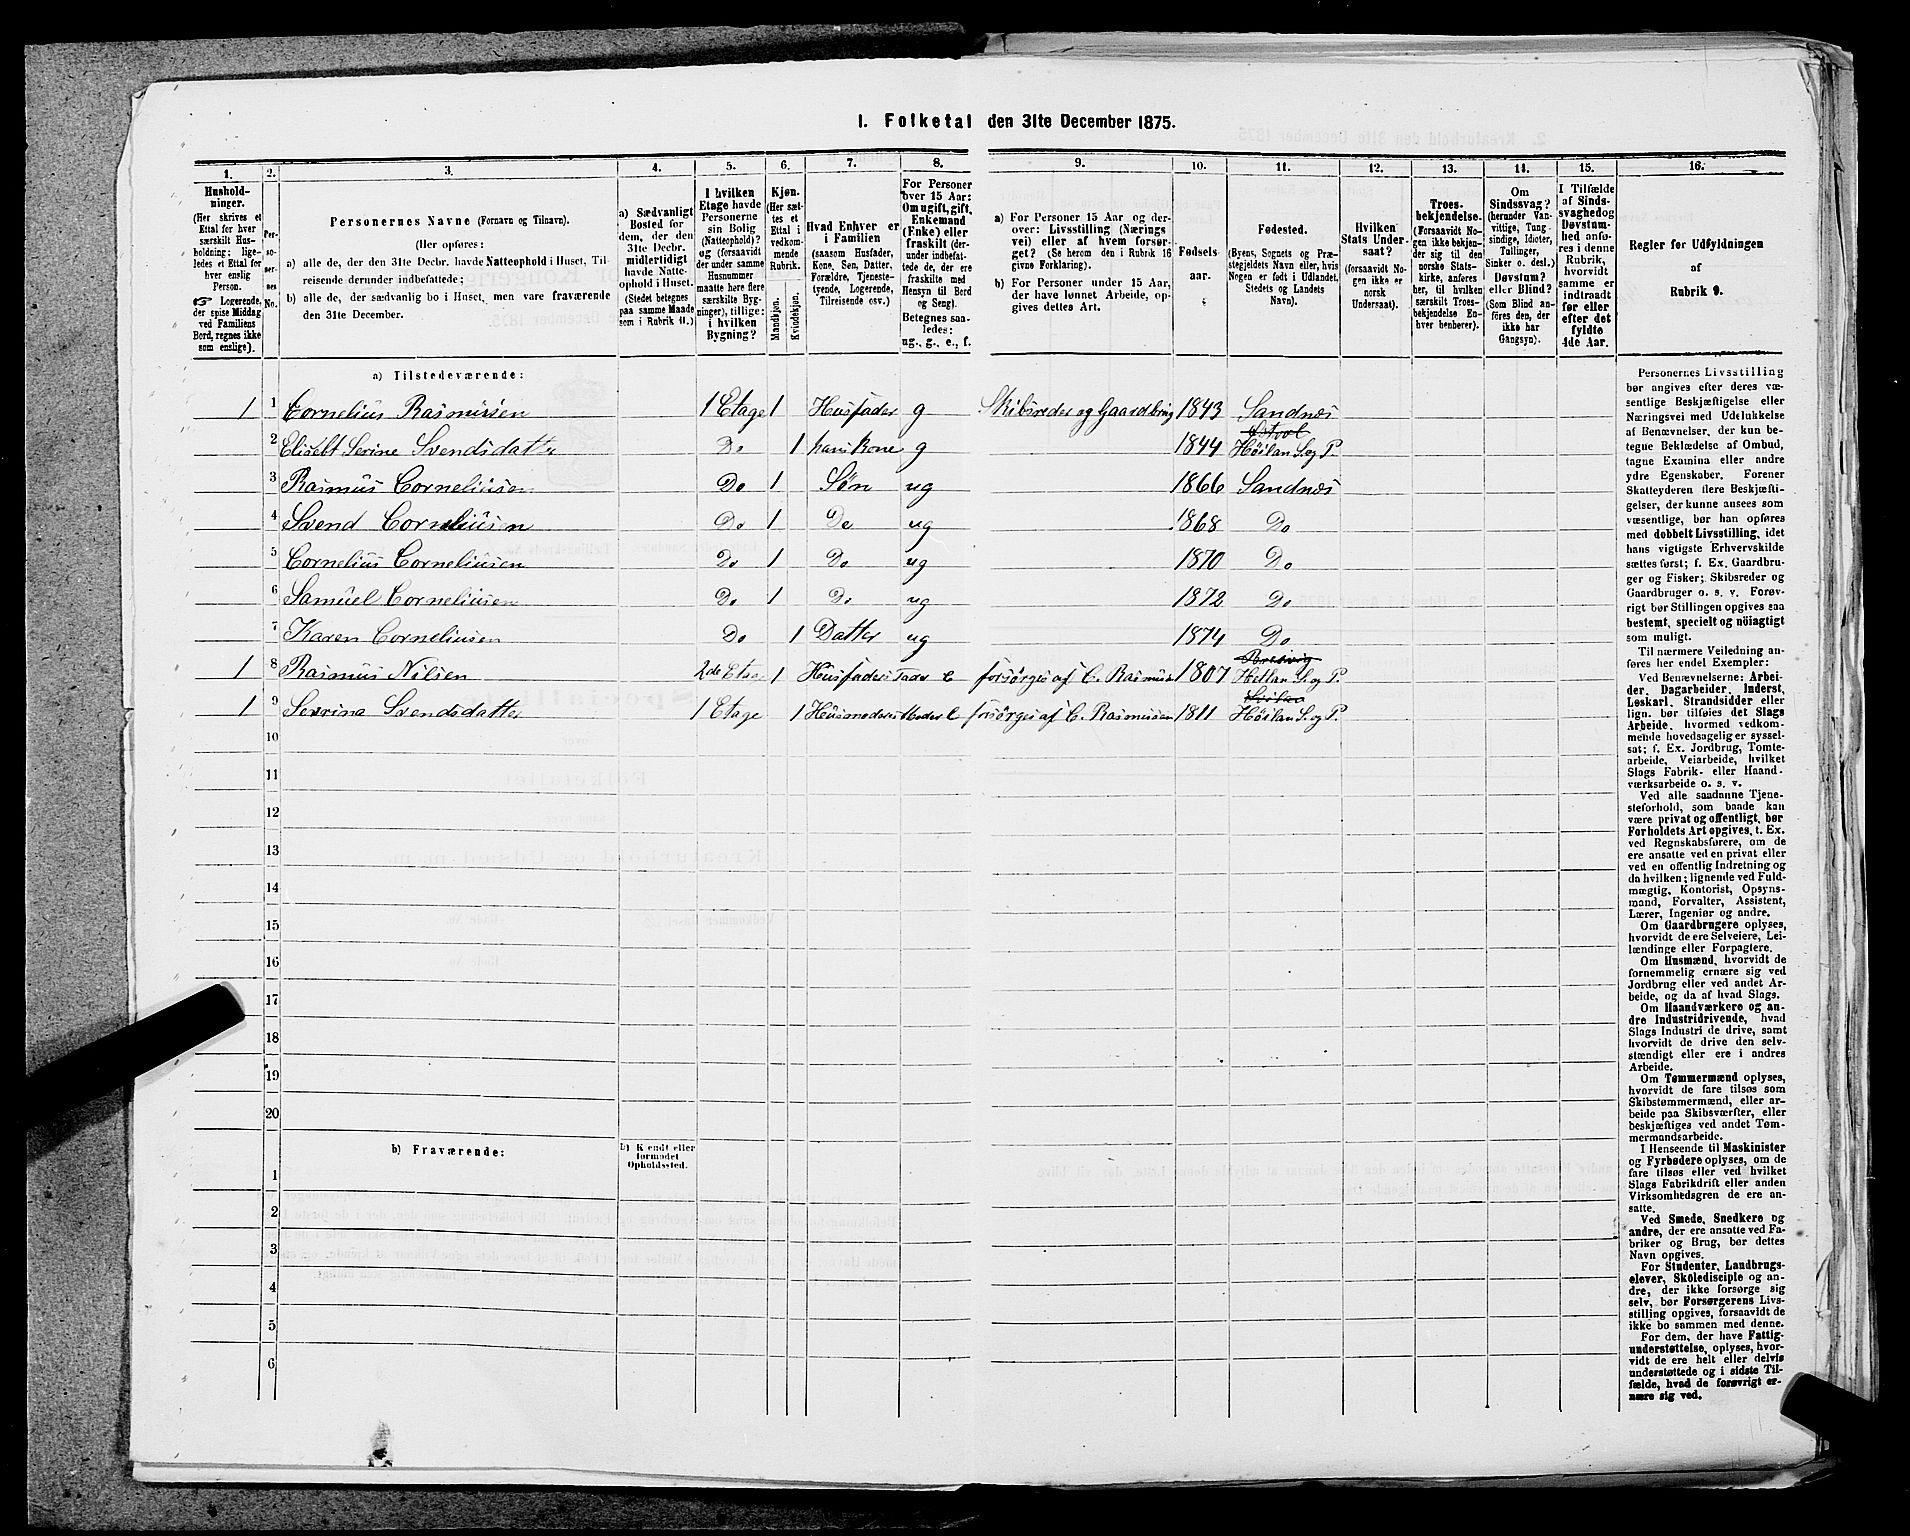 I. Folketal den 31te December 1875.
1. 2. 3. 4. 5. 6. 7. 8. 9. 10. 11. 12. 13. 14. 15. 16.
Hushold-
ninger.
(Her skrives et
Ettal for hver
særskilt Hus-
holdning; lige-
ledes et Ettal for
hver enslig
Person.
☞ Logerende,
der spise Middag
ved Familiens
Bord, regnes ikke
som enslige).
Per-
so-
ner-
nes
No.
Personernes Navne (Fornavn og Tilnavn).
(Her opføres:
a) alle de, der den 31te Decbr. havde Natteophold i Huset, Til-
reisende derunder indbefattede;
b) alle de, der sædvanlig bo i Huset, men vare fraværende
den 31te December.
a) Sædvanligt
Bosted for
dem, der den
31te Decbr.
midlertidigt
havde Natte-
ophold i Huset.
(Stedet betegnes
paa samme Maade
som i Rubrik 11.)
I hvilken
Etage havde
Personerne
sin Bolig
(Natteophold)?
og (forsaavidt
der under samme
Husnummer
maatte høre flere
særskilte Byg-
ninger), tillige:
i hvilken
Bygning?
Kjøn.
(Her sæt-
tes et
Ettal i
vedkom-
mende
Rubrik.
Mandkjøn.
Kvindekjøn.
Hvad Enhver er
i Familien
(saasom Husfader,
Kone, Søn, Datter,
Forældre, Tjeneste-
tyende, Logerende,
Tilreisende osv.)
For Personer
over 15 Aar:
Om ugift, gift,
Enkemand
(Enke) eller
fraskilt (der-
under indbefat-
tede de, der ere
fraskilte med
Hensyn til Bord
og Seng).
Betegnes saa-
ledes:
ug., g., e., f.
a) For Personer 15 Aar og der-
over: Livsstilling (Nærings
vei) eller af hvem forsør-
get? (Se herom den i Rubrik 16
givne Forklaring).
b) For Personer under 15 Aar,
der have lønnet Arbeide, op-
gives dettes Art.
Fødsels-
aar.
Fødested.
(Byens, Sognets og Præ-
stegjeldets Navn eller, hvis
Nogen er født i Udlandet.
Stedets og Landets
Navn).
Hvilken
Stats Under-
saat?
(forsaavidt No-
gen ikke er
norsk
Undersaat).
Troes-
bekjendelse.
(Forsaavidt No-
gen ikke bekjen-
der sig til den
norske Stats-
kirke, anføres
her, til hvilken
særskilt Troes-
bekjendelse En-
hver henhører).
Om
Sindssvag?
(herunder Van-
vittige, Tung-
sindige, Idioter,
Tullinger,
Sinker o. desl.)
Døvstum?
eller Blind?
(Som Blind an-
føres den, der
ikke har
Gangsyn).
I Tilfælde
af Sinds-
svaghed og
Døvstum-
hed anfø-
res i denne
Rubrik,
hvorvidt
samme er
indtraadt
før eller
efter det
fyldte
4de Aar.
Regler for Udfyldningen
af
Rubrik 9.
a) Tilstedeværende:
1 1 Cornelius Rasmussen 1 Etage 1 Husfader g Skibsreder og Gaardbrug 1843 Sandnæs
2 Elisebt Serine Svendsdatter Do 1 hans Kone g 1844 Høilan S. og P.
3 Rasmus Corneliusen Do 1 Søn ug 1866 Sandnæs
4 Svend Corneliusen Do 1 Do ug 1868 Do
5 Cornelius Corneliusen Do 1 Do ug 1870 Do
6 Samuel Corneliusen Do 1 Do ug 1872 Do
7 Karen Corneliusen Do 1 Datter ug 1874 Do
1 8 Rasmus Nilsen 2de Etage 1 Husfaders Fader E forsørges af C. Rasmusen 1807 Hetlan S. og P.
1 9 Sevrina Svendsdatter 1 Etage 1 Husmoders Moder E forsørges af C. Rasmussen 1811 Høilan S. og P.
10
11
12
13
14
15
16
17
18
19
20
b) Fraværende:
b) Kjendt eller
formodet
Opholdssted.
1
2
3
4
5
6
Personernes Livsstilling
bør angives efter deres væ-
sentlige Beskjæftigelse eller
Næringsvei med Udelukkelse
af Benævnelser, der kun be-
tegne Beklædelse af Ombud,
tagne Examina eller andre
ydre Egenskaber. Forener
Skatteyderen flere Beskjæfti-
gelser, der kunne ansees som
væsentlige, bør han opføres
med dobbelt Livsstilling, idet
hans vigtigste Erhvervskilde
sættes først; f. Ex. Gaardbru-
ger og Fisker; Skibsreder og
Gaardbruger o. s. v. Forøv-
rigt bør Stillingen opgives saa
bestemt, specielt og nöiagtigt
som muligt.
Til nærmere Veiledning an-
føres her endel Exempler:
Ved Benævnelserne: Arbei-
der, Dagarbeider, Inderst,
Løskarl, Strandsidder eller
lign. bør tilføies det Slags
Arbeide, hvormed vedkom-
mende hovedsagelig er syssel-
sat; f. Ex. Jordbrug, Tomte-
arbeide, Veiarbeide, hvilket
Slags Fabrik- eller Haand-
værksarbeide o. s. v.
Ved alle saadanne Tjene-
steforhold, som baade kan
være privat og offentligt, bør
Forholdets Art opgives, t. Ex.
ved Regnskabsførere, om de
ere ansatte ved en privat eller
ved en offentlig Indretning og
da hvilken; lignende ved Fuld-
mægtig, Kontorist, Opsyns-
mand, Forvalter, Assistent,
Lærer, Ingeniør og andre.
Om Gaardbrugere oplyses,
hvorvidt de ere Selveiere, Lei-
lændinge eller Forpagtere.
Om Husmænd, hvorvidt de
fornemmelig ernære sig ved
Jordbrug eller ved andet Ar-
beide, og da af hvad Slags.
Om Haandværkere og an-
dre Industridrivende, hvad
Slags Industri de drive, samt
hvorvidt de drive den selv-
stændigt eller ere i andres
Arbeide.
Om Tømmermænd oplyses,
hvorvidt de fare tilsøs som
Skibstømmermænd, eller ar-
beide paa Skibsværfter, eller
beskjæftiges ved andet Tøm-
mermandsarbeide.
I Henseende til Maskinister
og Fyrbødere oplyses, om de
fare tilsøs eller ved hvilket
Slags Fabrikdrift eller anden
Virksomhedsgren de ere an-
satte.
Ved Smede, Snedkere og
andre, der ere ansatte ved Fa-
briker og Brug, bør dettes
Navn opgives.
For Studenter, Landbrugs-
elever, Skoledisciple og an-
dre, der ikke forsørge sig
selv, bør Forsørgerens Livs-
stilling opgives, forsaavidt de
ikke bo sammen med denne.
For dem, der have Fattig-
understøttelse, oplyses, hvor-
vidt de ere helt eller delvis
understøttede og i sidste Til-
fælde, hvad de forøvrigt er-
nære sig ved.